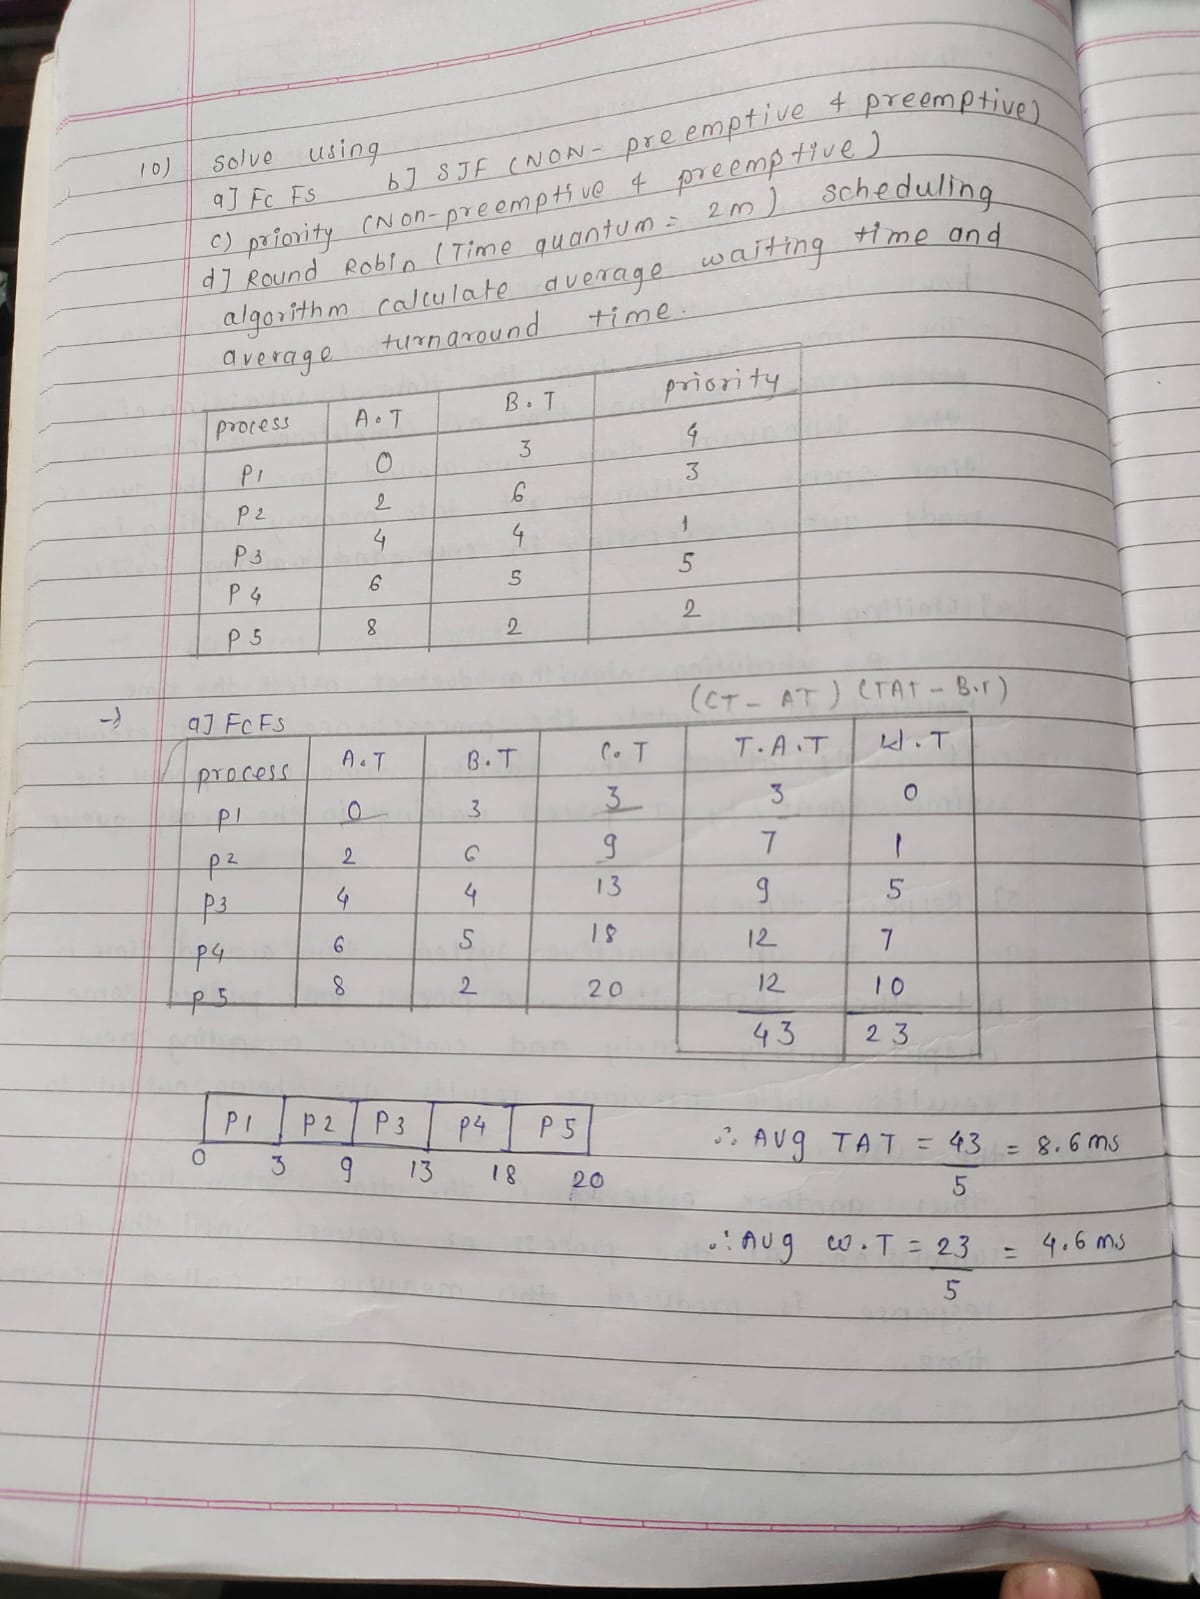 10) solve using
a] FcFs b] SJF (NON-preemptive & preemptive)
c) priority (Non-preemptive & preemptive)
d] Round Robin (Time quantum = 2m) scheduling
algorithm calculate average waiting time and
average turnaround time.
process A.T B.T priority
P1 0 3 4
P2 2 6 3
P3 4 4 1
P4 6 5 5
P5 8 2 2
(CT - AT) (TAT - B.T)
→ a] FcFs
process A.T B.T C.T T.A.T W.T
P1 0 3 3 3 0
P2 2 6 9 7 1
P3 4 4 13 9 5
P4 6 5 18 12 7
P5 8 2 20 12 10
43 23
P1 P2 P3 P4 P5
0 3 9 13 18 20
∴ Avg TAT = 43 = 8.6 ms
5
∴ Avg W.T = 23 = 4.6 ms
5